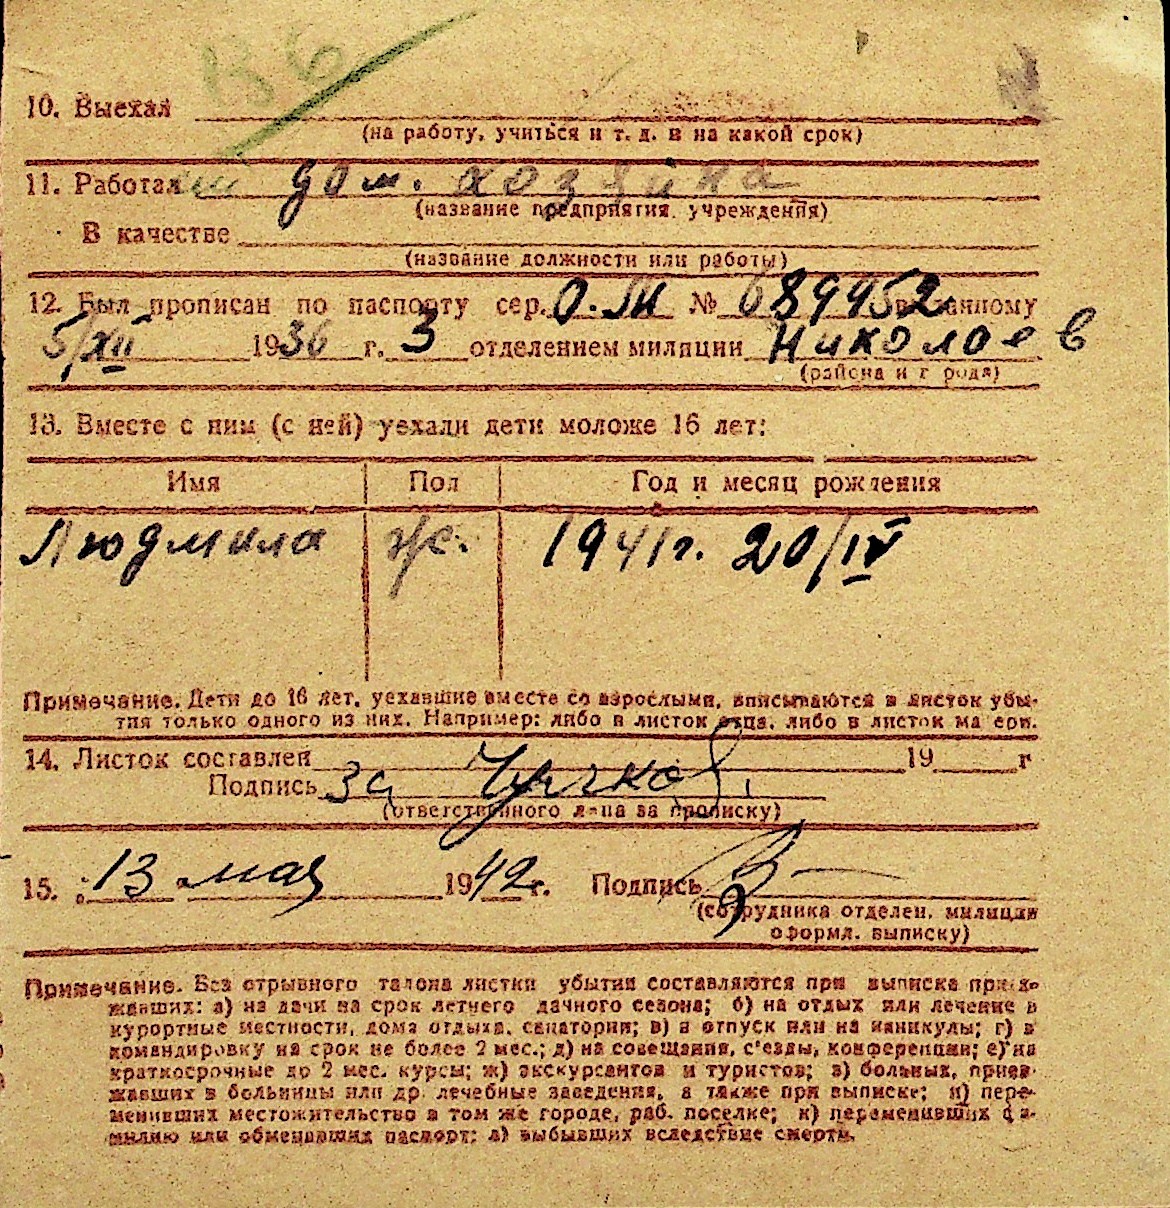 В 6
10. Выехал
(на работу, учиться и т. д. и на какой срок)
11. Работал дом. хозяйка
(название предприятия, учреждения)
В качестве
(название должности или работы)
12. Был прописан по паспорту сер. О.М № 689952 выданному
5/XII 1936 г. 3 отделением милиции Николаев
(района и города)
13. Вместе с ним (с ней) уехали дети моложе 16 лет:
Имя Пол Год и месяц рождения
Людмила ж. 1941 г. 20/IV
Примечание. Дети до 16 лет, уехавшие вместе со взрослыми, вписываются в листок убы-
тия только одного из них. Например: либо в листок отца, либо в листок матери.
14. Листок составлен 19 г
Подпись за
(ответственного лица за прописку)
15. „13 „ мая 1942 г. Подпись
(сотрудника отделен. милиции
оформл. выписку)
Примечание. Без отрывного талона листки убытия составляются при выписке приез-
жавших: а) на дачи на срок летнего дачного сезона; б) на отдых или лечение в
курортные местности, дома отдыха, санатории; в) в отпуск или на каникулы; г) в
командировку на срок не более 2 мес.; д) на совещания, с'езды, конференции; е) на
краткосрочные до 2 мес. курсы; ж) экскурсантов и туристов; з) больных, приез-
жавших в больницы или др. лечебные заведения, а также при выписке; и) пере-
менивших местожительство в том же городе, раб. поселке; к) переменивших фа-
милию или обменявших паспорт; л) выбывших вследствие смерти.